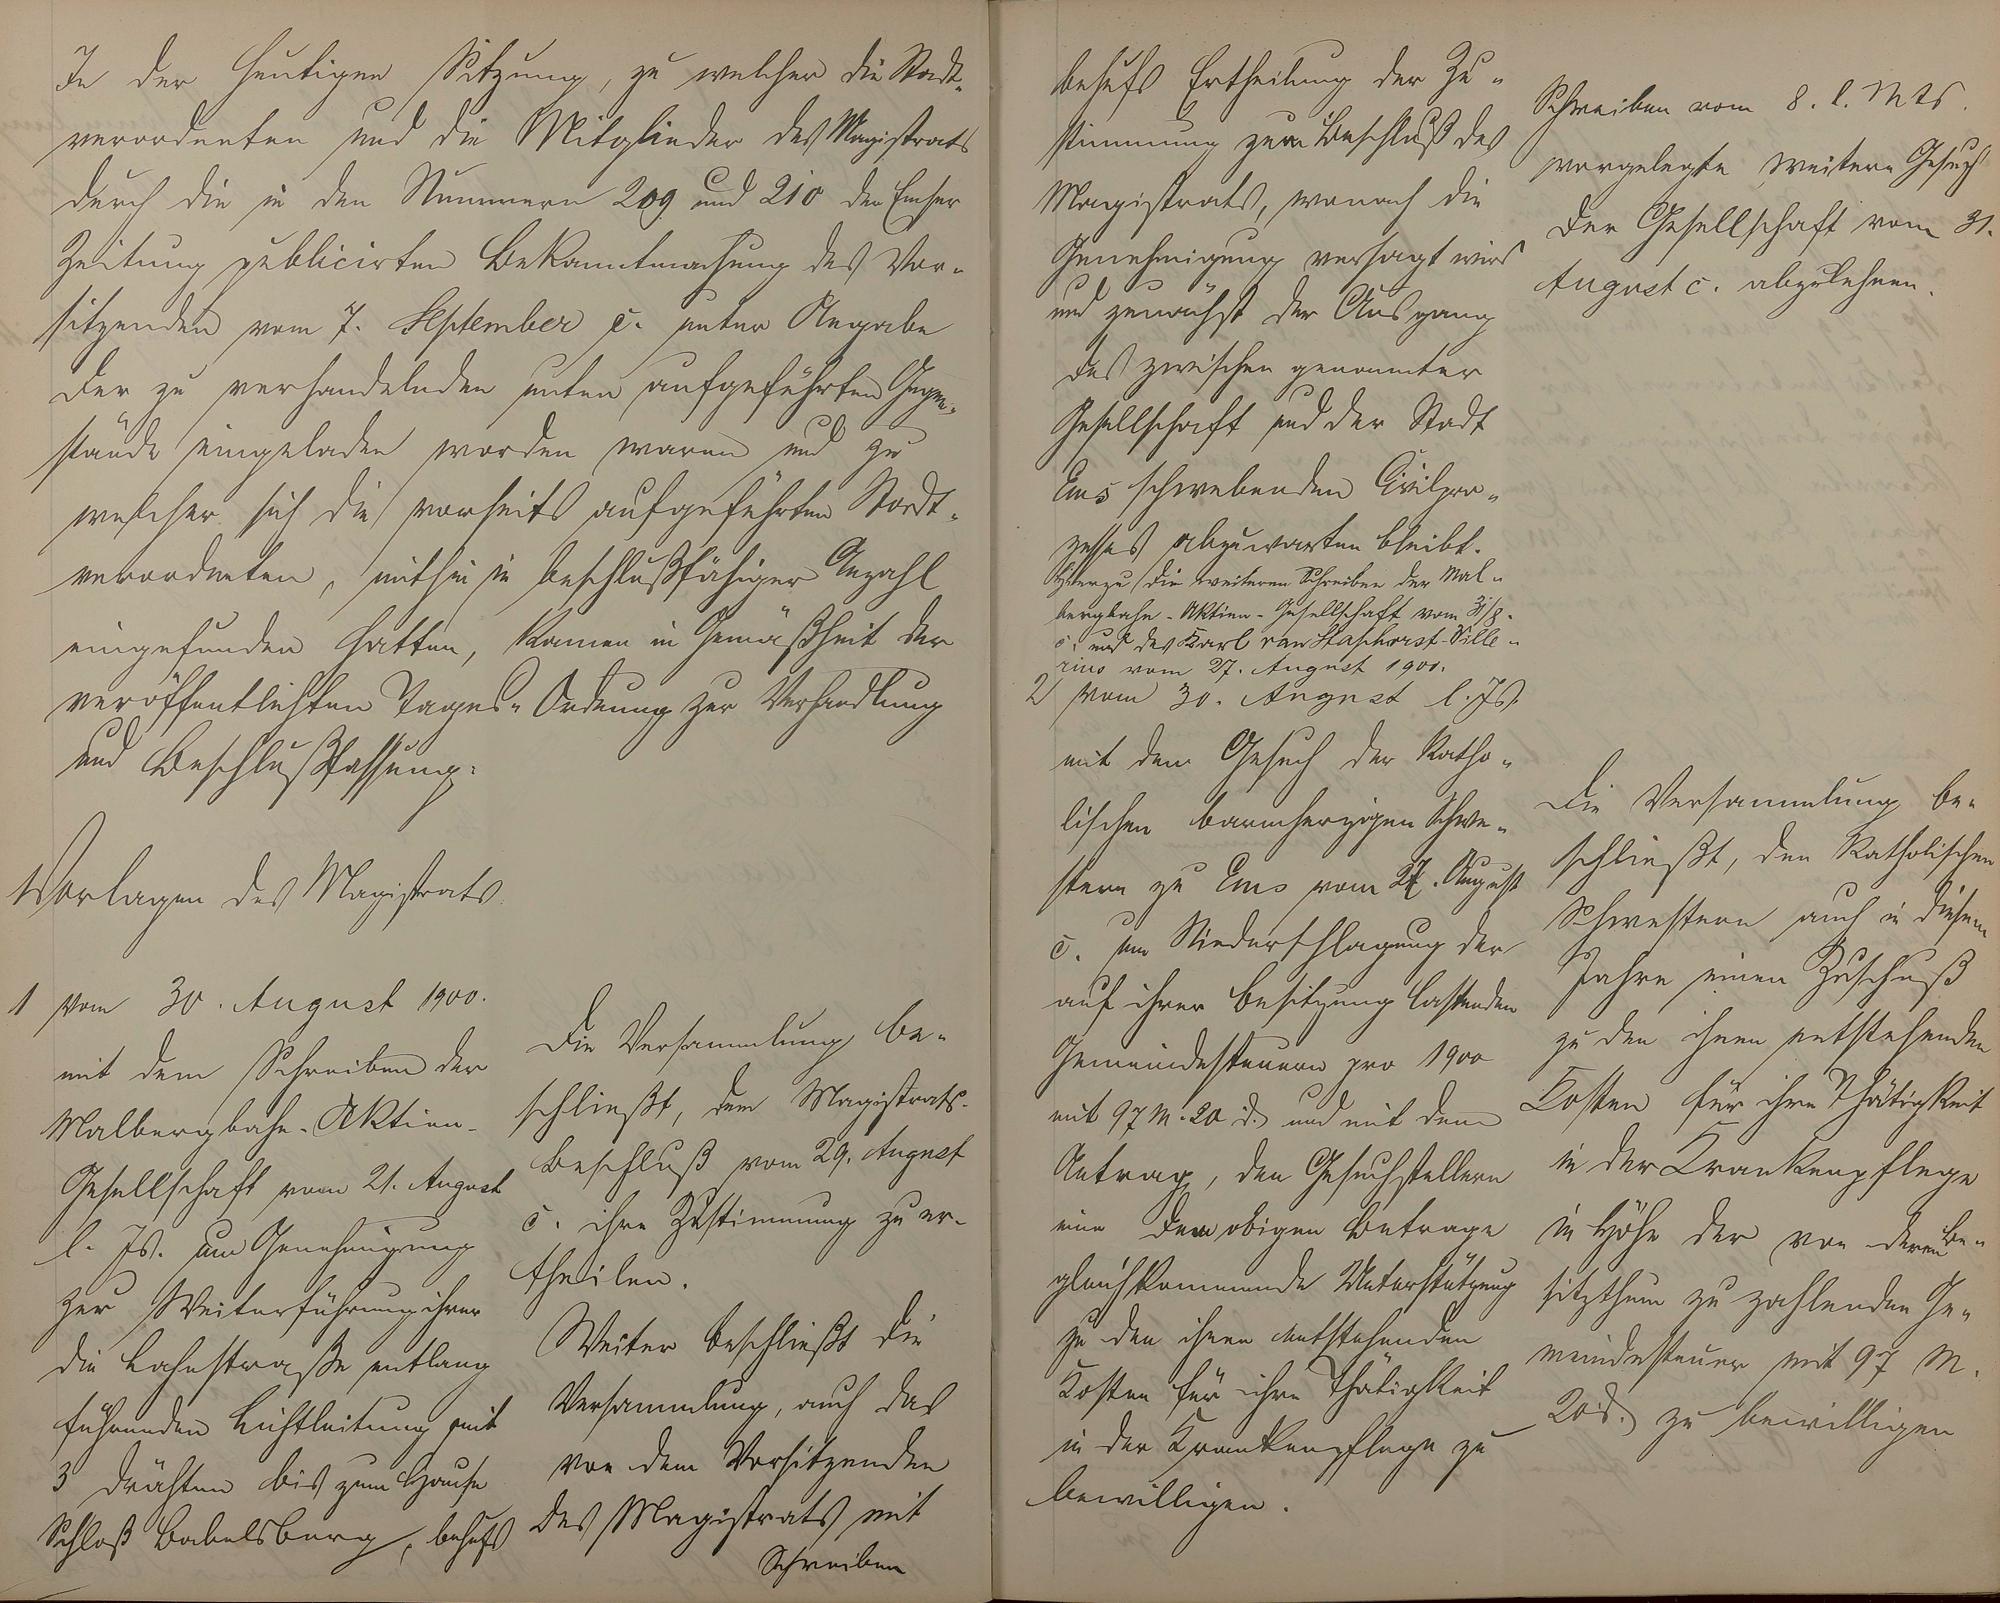 In der heutigen Sitzung, zu welcher die Stadt-
verordneten und die Mitglieder des Magistrats
durch die in den Nummern 209 und 210 der Emser
Zeitung publicirten Bekanntmachung des Vor-
sitzenden vom 7. September c. unter Angabe
der zu verhandelnden unten aufgeführten Gegen-
stände eingeladen worden waren und zu
welcher sich die vorseits aufgeführten Stadt-
verordneten, mithin in beschlußfähiger Anzahl
eingefunden hatten, kamen in Gemäßheit der
veröffentlichten Tages-Ordnung zur Verhandlung
und Beschlußfassung:
Vorlagen des Magistrats
1 vom 30. August 1900.
mit dem Schreiben der
Malbergbahn-Aktien-
Gesellschaft vom 21. August
l. Js. um Genehmigung
zur Weiterführung ihrer
die Lahnstraße entlang
führenden Lichtleitung mit
3 Drähten bis zum Hause
Schloß Babelsberg, behufs
Die Versammlung be-
schließt, dem Magistrats-
Beschluß vom 29. August
c. ihre Zustimmung zu er-
theilen.
Weiter beschließt die
Versammlung, auch das
von dem Vorsitzenden
des Magistrats mit
Schreiben
behufs Ertheilung der Zu-
stimmung zum Beschluß des
Magistrats, wonach die
Genehmigung versagt wird
und zunächst der Ausgang
des zwischen genannter
Gesellschaft und der Stadt
Ems schwebenden Civilpro-
zesses abzuwarten bleibt.
Hierzu die weiteren Schreiben der Mal-
bergbahn-Aktien-Gesellschaft vom 31/8.
c. und des Karl van Haphorst-Sille-
rius vom 27. August 1900.
2 vom 30. August l. Js.
mit dem Gesuch der Katho-
lischen barmherzigen Schwe-
stern zu Ems vom 27. August
c. um Niederschlagung der
auf ihrer Besitzung lastenden
Gemeindesteuern pro 1900
mit 97 M. 20 d. und mit dem
Antrag, den Gesuchstellern
eine dem obigen Betrage
gleichkommende Unterstützung
zu den ihnen entstehenden
Kosten für ihre Thätigkeit
in der Krankenpflege zu
bewilligen.
Schreiben vom 8. l. Mts.
vorgelegte weitere Gesuch
der Gesellschaft vom 31.
August c. abzulehnen.
Die Versammlung be-
schließt, den Katholischen
Schwestern auch in diesem
Jahre einen Zuschuß
zu den ihnen entstehenden
Kosten für ihre Thätigkeit
in der Krankenpflege
in Höhe der von deren Be-
sitzthum zu zahlenden Ge-
meindesteuer mit 97 M.
20 d. zu bewilligen